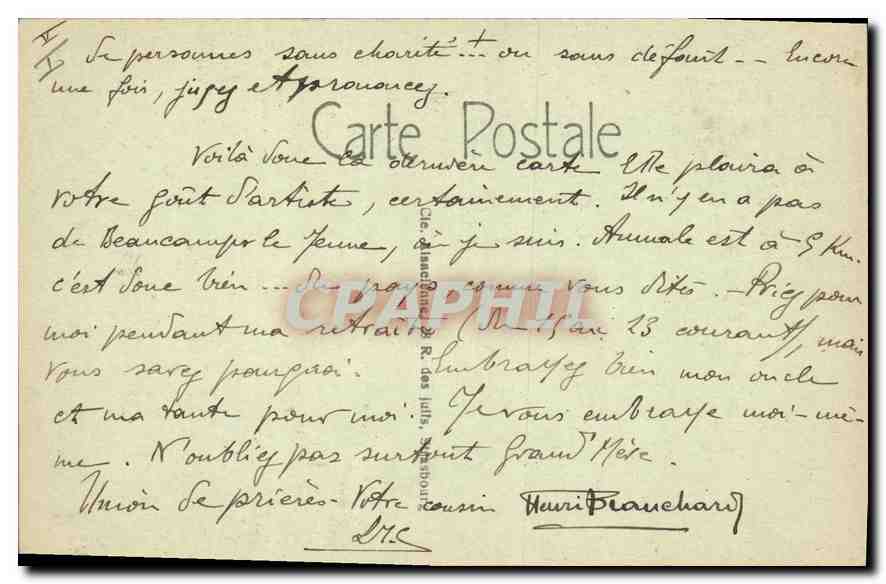 de personnes sans charité..+.. ou sans défaut -- Encore
une fois, jugez et prononcez.
Carte Postale
Voilà donc la dernière carte. Elle plaira à
votre goût d'artiste, certainement. Il n'y en a pas
de Beaucamps le Jeune, où je suis. Aumale est à 5 Km.
c'est donc bien... du pays, comme vous dites. - Priez pour
moi pendant ma retraite (du 19 au 23 courant), mais
vous savez pourquoi. Embrassez bien mon oncle
et ma tante pour moi. Je vous embrasse moi-mê-
me. N'oubliez pas surtout Grand'Mère.
Union de prières - Votre cousin Henri Blanchard
Cie. Alsacienne, 8 R. des juifs, Strasbourg
CPAPHIL